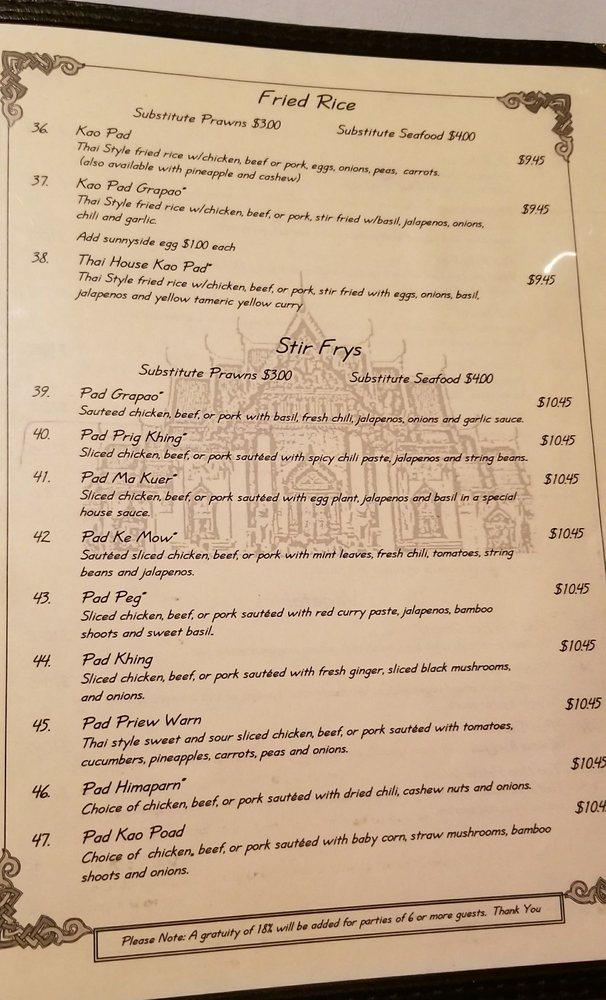 Fried Rice
Substitute Prawns $3.00 Substitute Seafood $4.00
36. Kao Pad $9.45
Thai Style fried rice w/chicken, beef or pork, eggs, onions, peas, carrots.
(also available with pineapple and cashew)
37. Kao Pad Grapao* $9.45
Thai Style fried rice w/chicken, beef, or pork, stir fried w/basil, jalapenos, onions,
chili and garlic.
Add sunnyside egg $1.00 each
38. Thai House Kao Pad* $9.45
Thai Style fried rice w/chicken, beef, or pork, stir fried with eggs, onions, basil,
jalapenos and yellow tameric yellow curry
Stir Frys
Substitute Prawns $3.00 Substitute Seafood $4.00
39. Pad Grapao* $10.45
Sauteed chicken, beef, or pork with basil, fresh chili, jalapenos, onions and garlic sauce.
40. Pad Prig Khing* $10.45
Sliced chicken, beef, or pork sautéed with spicy chili paste, jalapenos and string beans.
41. Pad Ma Kuer* $10.45
Sliced chicken, beef, or pork sautéed with egg plant, jalapenos and basil in a special
house sauce.
42 Pad Ke Mow* $10.45
Sautéed sliced chicken, beef, or pork with mint leaves, fresh chili, tomatoes, string
beans and jalapenos.
43. Pad Peg* $10.45
Sliced chicken, beef, or pork sautéed with red curry paste, jalapenos, bamboo
shoots and sweet basil.
44. Pad Khing $10.45
Sliced chicken, beef, or pork sautéed with fresh ginger, sliced black mushrooms,
and onions.
45. Pad Priew Warn $10.45
Thai style sweet and sour sliced chicken, beef, or pork sautéed with tomatoes,
cucumbers, pineapples, carrots, peas and onions.
46. Pad Himaparn* $10.45
Choice of chicken, beef, or pork sautéed with dried chili, cashew nuts and onions.
47. Pad Kao Poad $10.4
Choice of chicken, beef, or pork sautéed with baby corn, straw mushrooms, bamboo
shoots and onions.
Please Note: A gratuity of 18% will be added for parties of 6 or more guests. Thank You